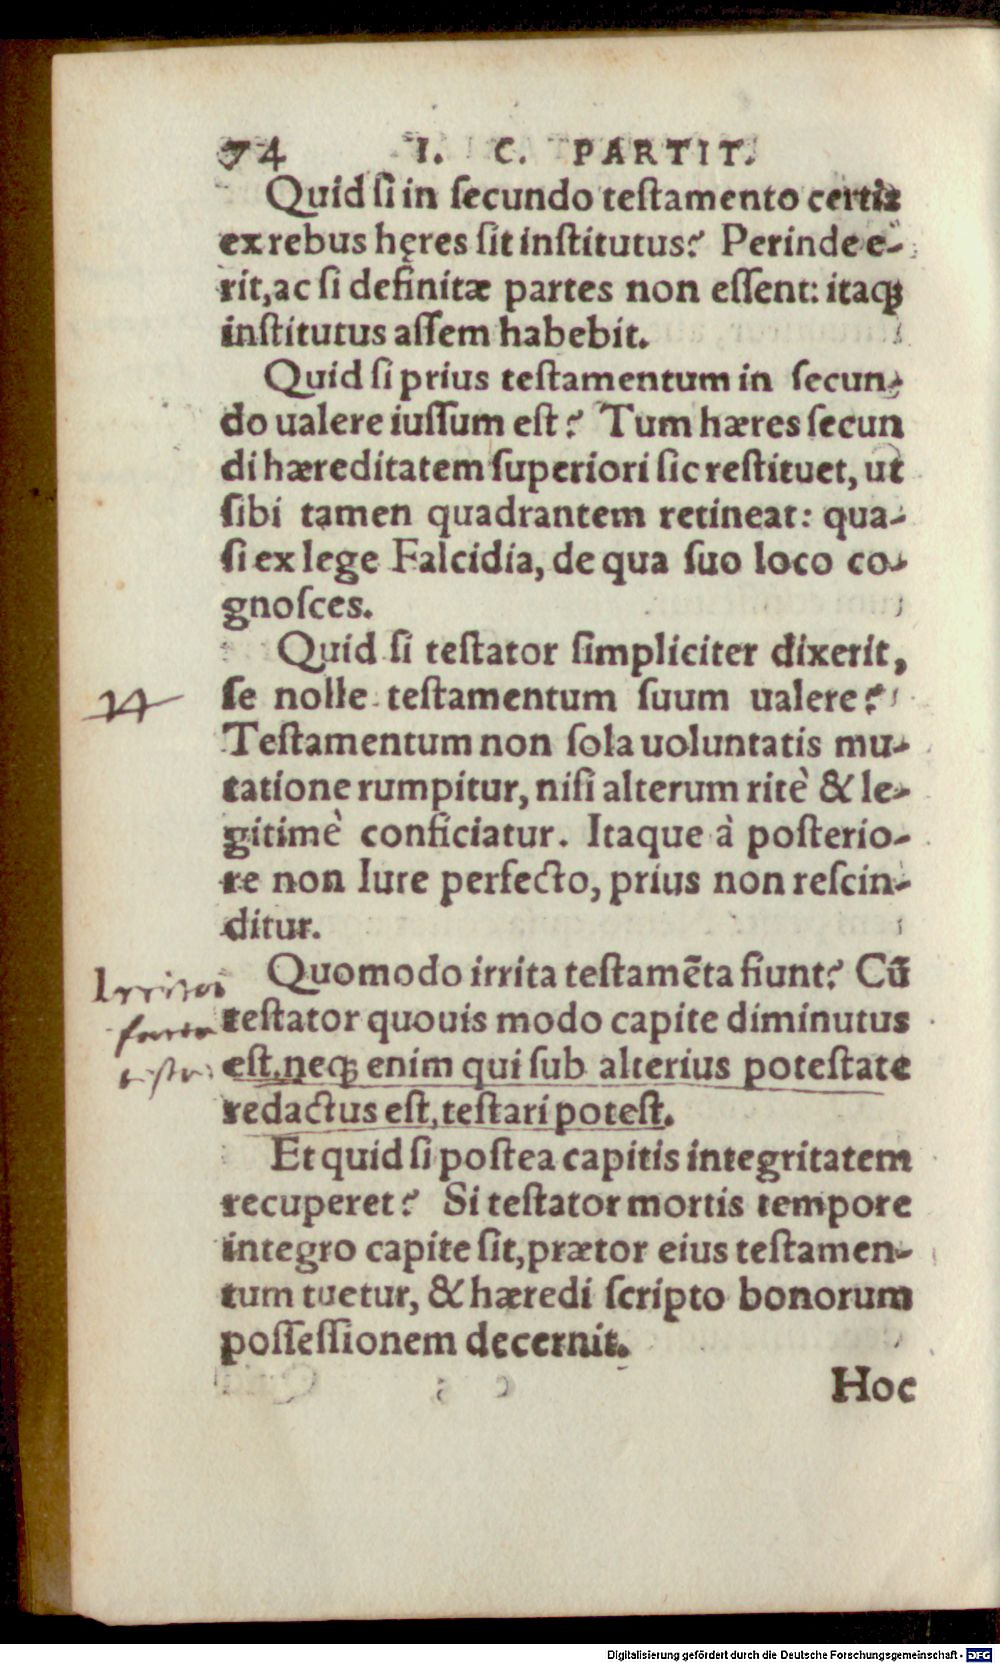 74 I. C. PARTIT.
Quid si in ſecundo teſtamento certis
ex rebus hęres ſit inſtitutus? Perinde e-
rit, ac ſi definitæ partes non eſſent: itaq;
inſtitutus aſſem habebit.
Quid ſi prius teſtamentum in ſecun-
do ualere iuſſum eſt? Tum hæres ſecun
di hæreditatem ſuperiori ſic reſtituet, ut
ſibi tamen quadrantem retineat: qua-
ſi ex lege Falcidia, de qua ſuo loco co-
gnoſces.
Quid ſi teſtator ſimpliciter dixerit,
ſe nolle teſtamentum ſuum ualere?
Teſtamentum non ſola uoluntatis mu-
tatione rumpitur, niſi alterum ritè & le-
gitimè conficiatur. Itaque à poſterio-
re non Iure perfecto, prius non reſcin-
ditur.
Quomodo irrita teſtamēta fiunt? Cū
teſtator quouis modo capite diminutus
eſt, neq; enim qui ſub alterius poteſtate
redactus eſt, teſtari poteſt.
Et quid ſi poſtea capitis integritatem
recuperet? Si teſtator mortis tempore
integro capite ſit, prætor eius teſtamen-
tum tuetur, & hæredi ſcripto bonorum
poſſeſſionem decernit.
Hoc
Digitalisierung gefördert durch die Deutsche Forschungsgemeinschaft - DFG